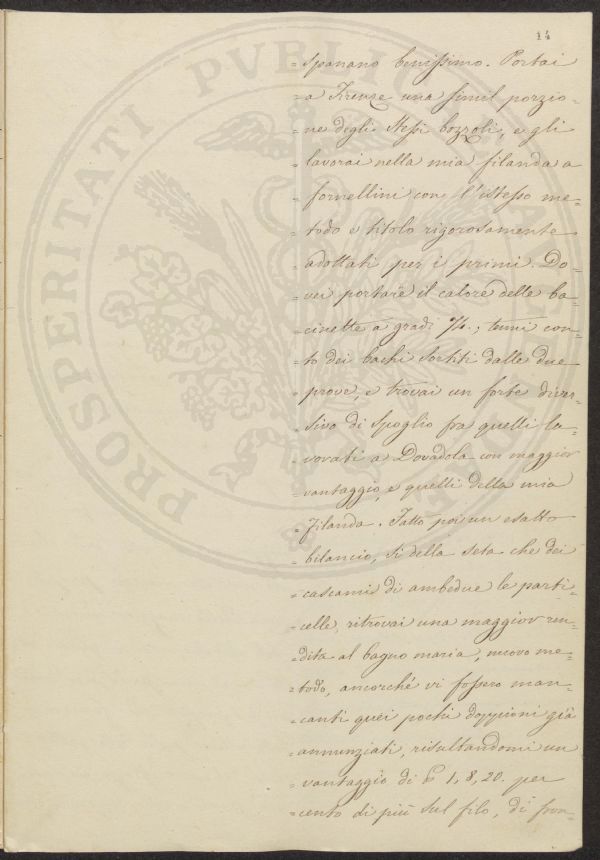 14
= spanano benissimo. Portai
= a Firenze una simil porzio-
= ne degli stessi bozzoli, e gli
= lavorai nella mia filanda a
= fornellini con l'istesso me-
= todo e titolo rigorosamente
= adottati per i primi. Do-
= vei portare il calore delle ba-
= cinette a gradi 74.; tenni con-
= to dei bachi sortiti dalle due
= prove, e trovai un forte diver-
= sivo di spoglio fra quelli la-
= vorati a Dovadola con maggior
= vantaggio, e quelli della mia
= filanda. Fatto poi un esatto
= bilancio, sì della seta che dei
= cascami di ambedue le parti-
= celle, ritrovai una maggior ren-
= dita al bagno maria, nuovo me-
= todo, ancorché vi fossero man-
= canti quei pochi doppioni già
= annunziati, risultandomi un
= vantaggio di 1, 8, 20. per
= cento di più sul filo, di fron-
PROSPERITATI PVBLICAE